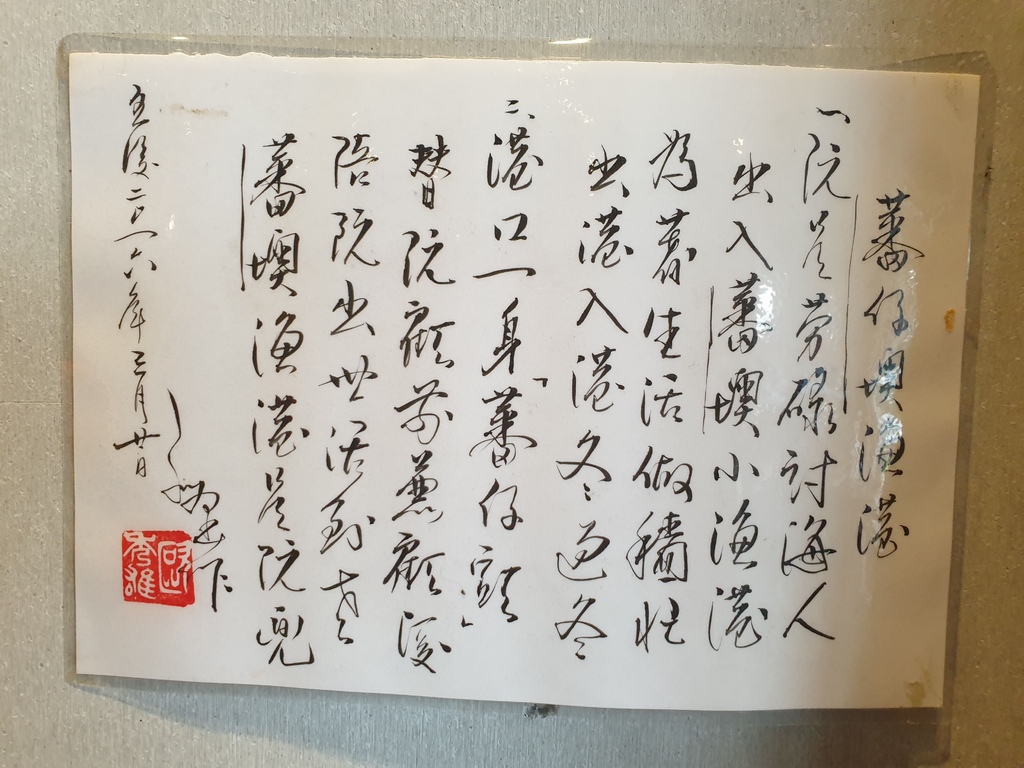 蕃仔墺漁港
一、阮是勞碌討海人
出入蕃墺小漁港
為著生活做穡忙
出港入港冬過冬
二、港口一身「蕃仔頭」
替阮顧前兼顧後
陪阮出世活到老
蕃墺漁港是阮兜
主後二〇一六年三月廿日